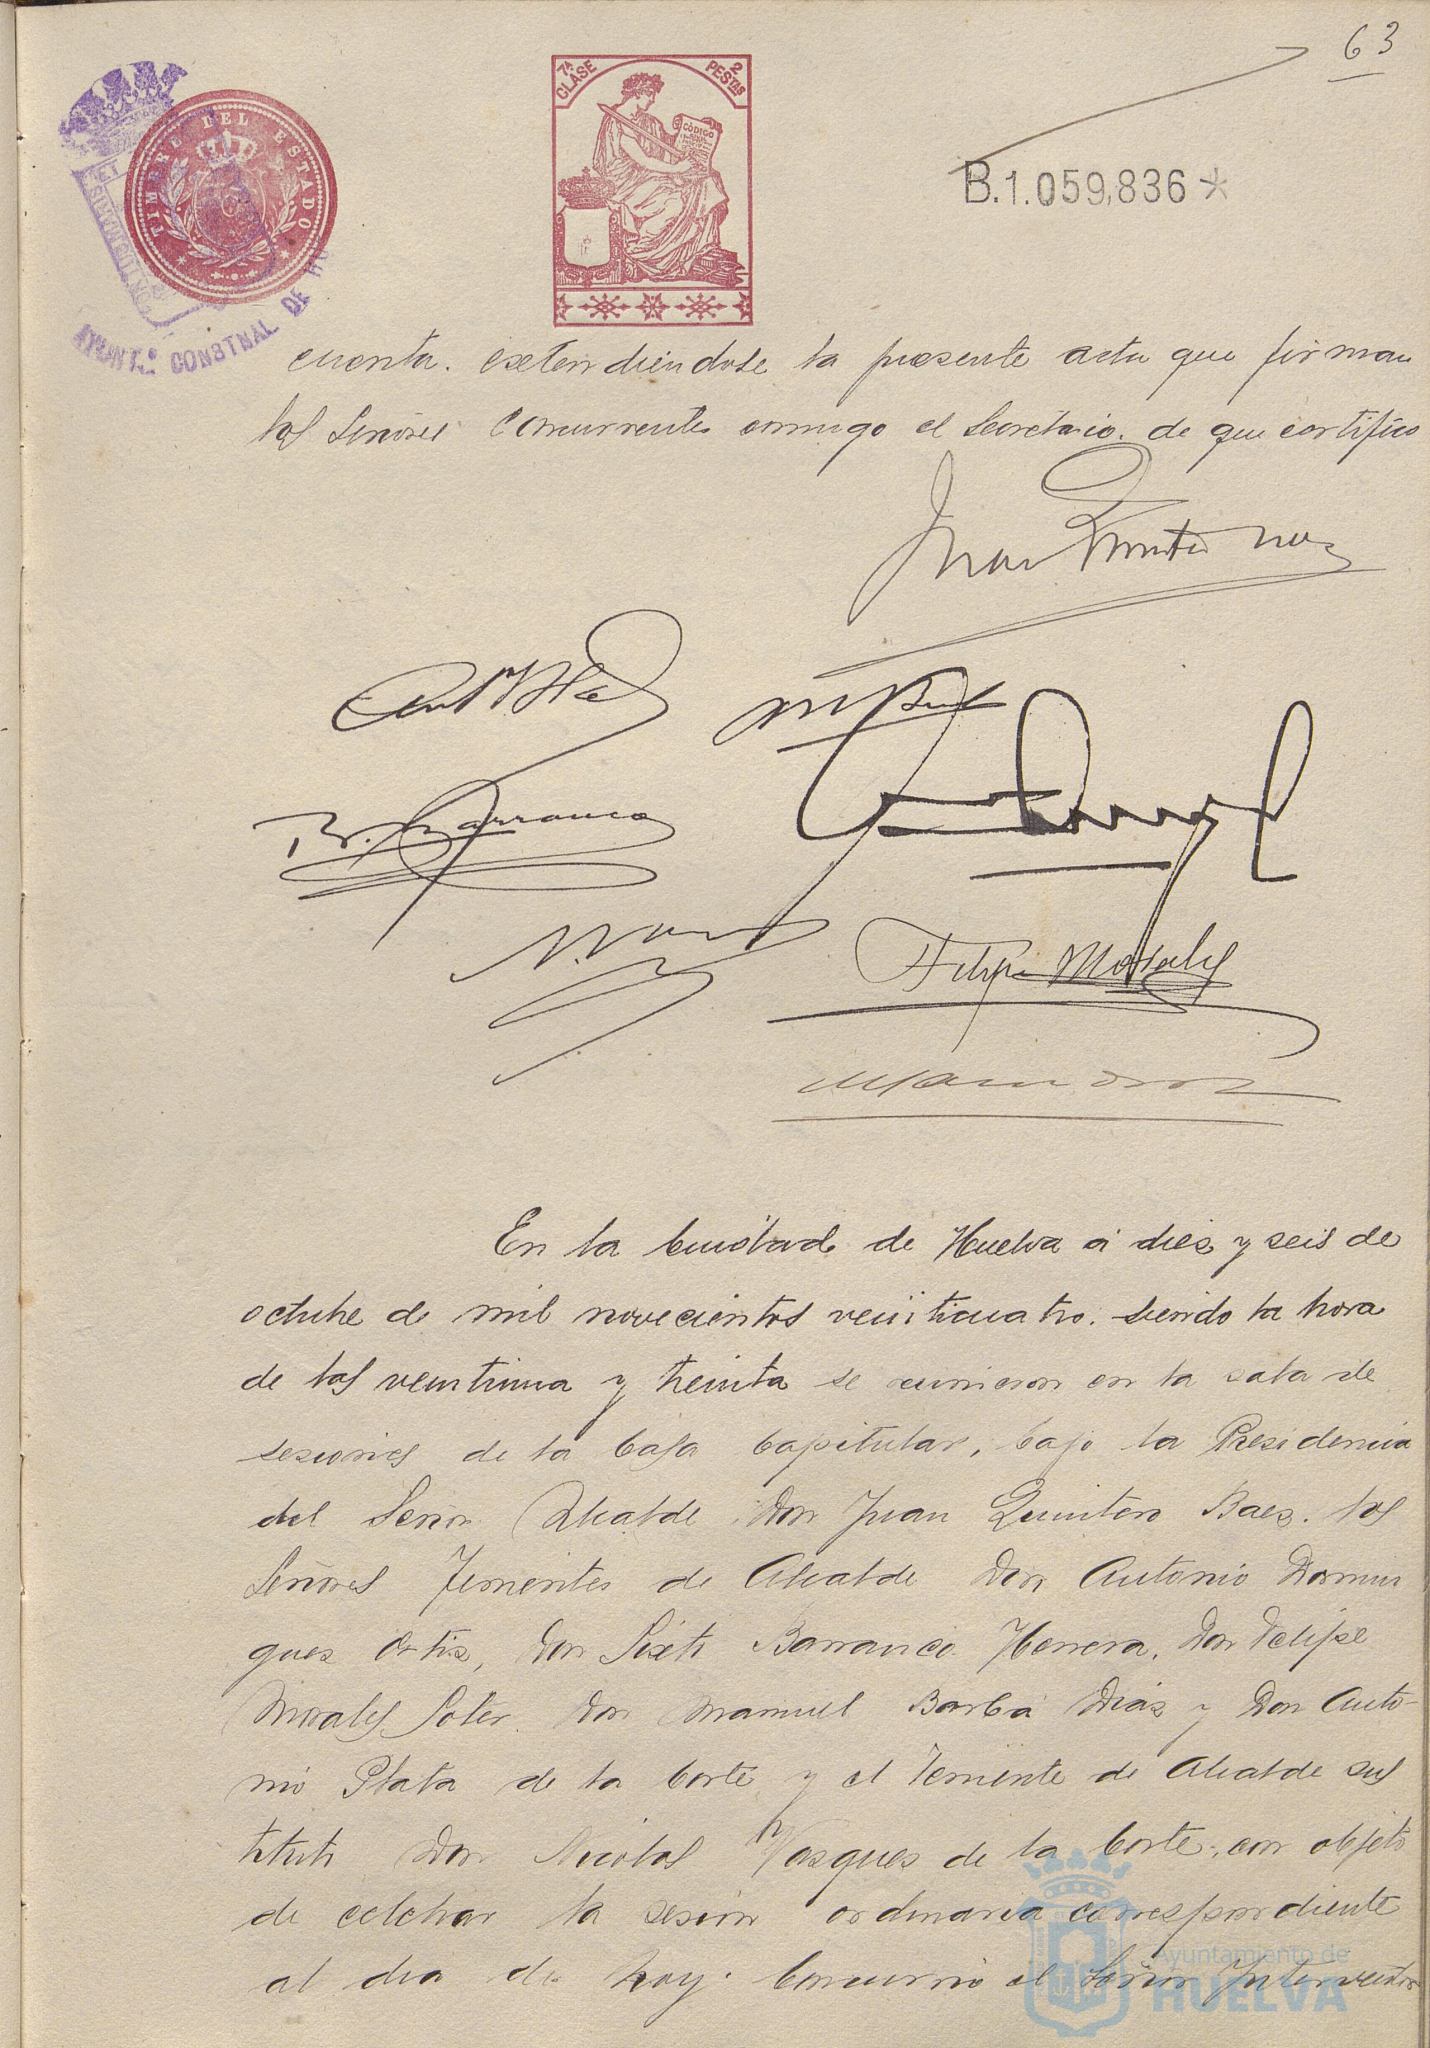 63
TIMBRE DEL ESTADO
7ª CLASE
2 PESTAS
CÓDIGO
B.1.059,836*
AYUNTº CONSTNAL DE HU
cuenta. extendiéndose la presente acta que firman
los Señores concurrentes conmigo el Secretario. de que certifico
Juan Quintero Baez
B. Barranco
Felipe Morales
En la Ciudad de Huelva á diez y seis de
octubre de mil novecientos veinticuatro. siendo la hora
de las veintiuna y treinta se reunieron en la sala de
sesiones de la Casa Capitular, bajo la Presidencia
del Señor Alcalde Don Juan Quintero Baez. los
Señores Tenientes de Alcalde Don Antonio Domin
guez Ortiz, Don Sixto Barranco Herrera, Don Felipe
Morales Soler. Don Manuel Barba Diaz y Don Anto-
nio Plata de la Corte y el Teniente de Alcalde sus
tituto Don Nicolas Vazques de la Corte, con objeto
de celebrar la sesion ordinaria correspondiente
al dia de hoy. Concurrió el Señor Interventor
Ayuntamiento de
HUELVA